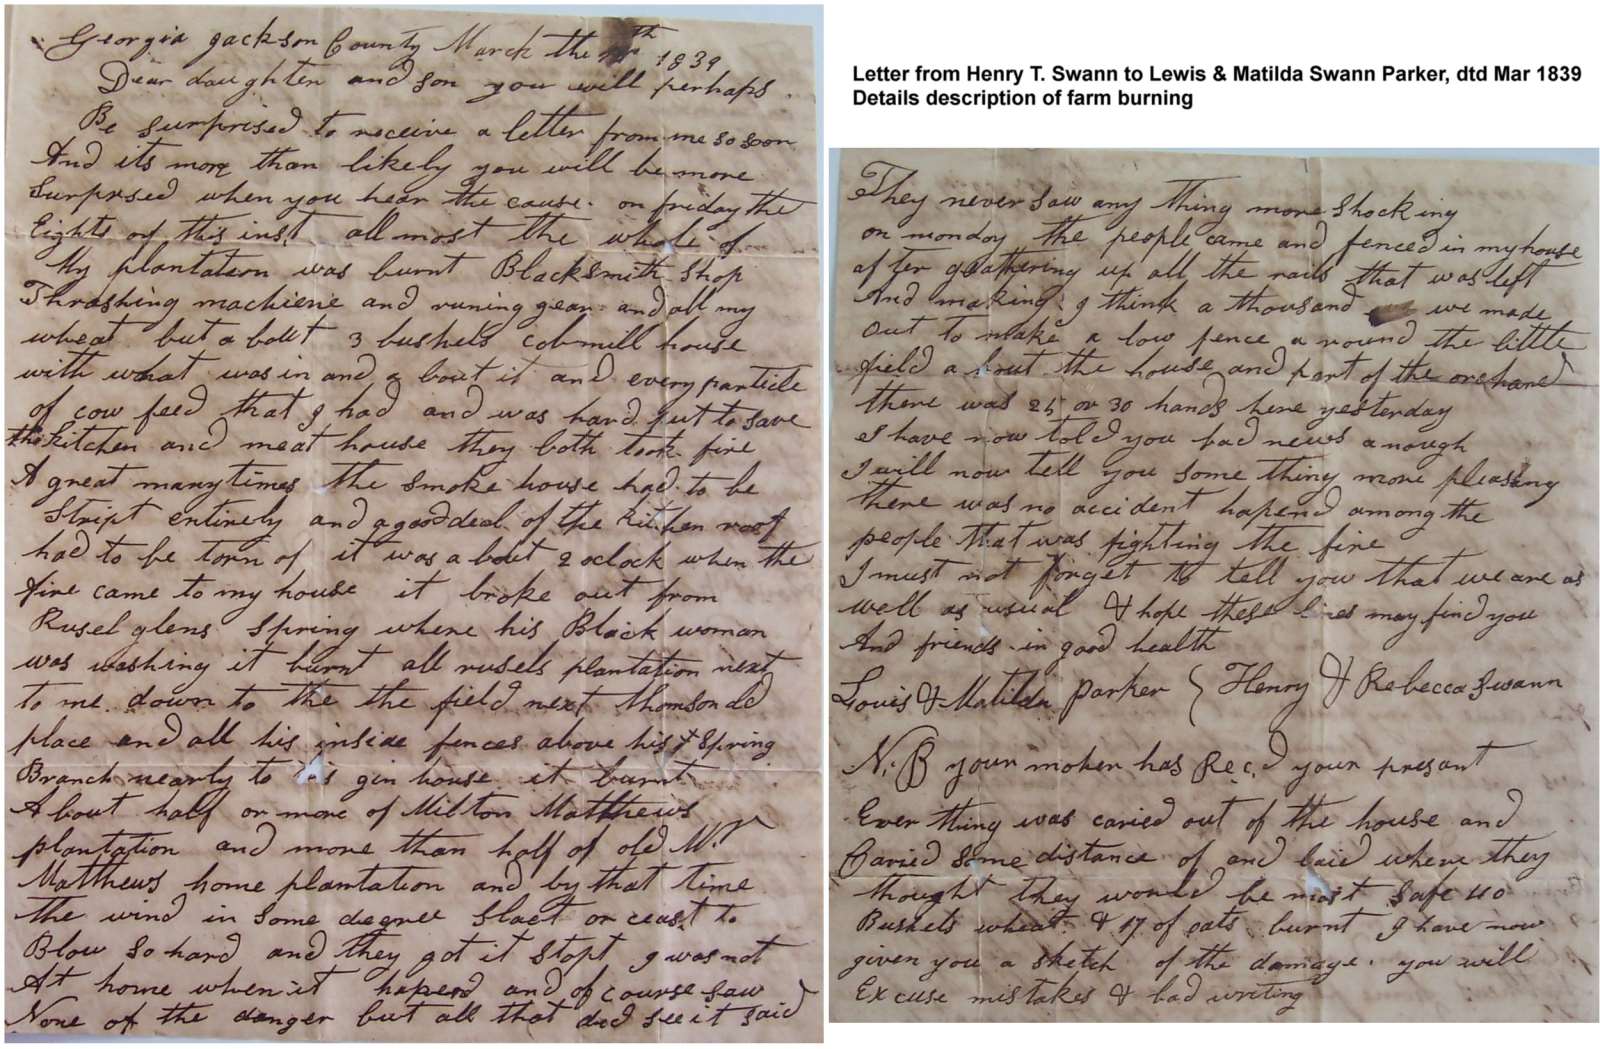 Georgia Jackson County March the th 1839
Dear daughten and son you will perhaps
Be surprised to receive a letter from me so soon
And its more than likely you will be more
Surprsed when you hear the cause. on friday the
Eights of this inst all most the whole of
My plantation was burnt Blacksmith Shop
Thrashing machiene and runing gear and all my
wheat but a bout 3 bushels cobmill house
with what was in and a bout it and every particle
of cow feed that I had and was hard put to save
the kitchen and meat house they both took fire
A great many times the smoke house had to be
Stript entirely and a good deal of the kitchen roof
had to be torn of it was a bout 2 oclock when the
fire came to my house it broke out from
Rusel glens Spring where his Black woman
was washing it burnt all rusels plantation next
to me down to the the field next thomson old
place and all his inside fences above his Spring
Branch nearly to his gin house it burnt
A bout half or more of Milton Matthews
plantation and more than half of old Mr
Matthews home plantation and by that time
the wind in some degree slact or ceast to
Blow so hard and they got it stopt I was not
At home when it hapend and of course saw
None of the danger but all that did see it said
Letter from Henry T. Swann to Lewis & Matilda Swann Parker, dtd Mar 1839
Details description of farm burning
They never saw any thing more shocking
on monday the people came and fenced in my house
after gathering up all the rails that was left
And making I think a thousand we made
out to make a low fence a round the little
field a bout the house and part of the orchard
there was 25 or 30 hands here yesterday
I have now told you bad news anough
I will now tell you some thing more pleasing
there was no accident hapend among the
people that was fighting the fire
I must not forget to tell you that we are as
well as usual & hope these lines may find you
And friends in good health
Louis & Matilda Parker { Henry & Rebecca Swann
N.B your mother has Recd your presant
Ever thing was caried out of the house and
Caried some distance of and laid where they
thought they would be most safe 40
Bushels wheat & 17 of oats burnt I have now
given you a sketch of the damage. you will
Excuse mistakes & bad writing